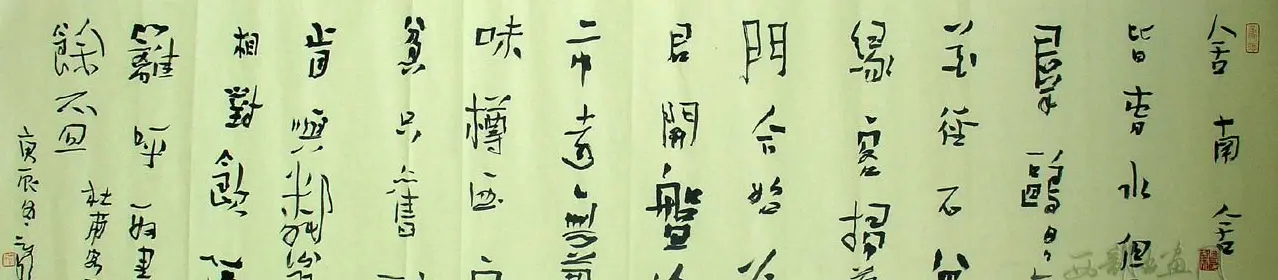 舍南舍
皆春水但
見羣鷗日
花徑不曾
緣客掃
門今始為
君開盤
市遠無兼
味樽酒家
貧只舊
肯與鄰翁
相對飲
籬呼取盡
餘盃
杜甫客
庚辰冬